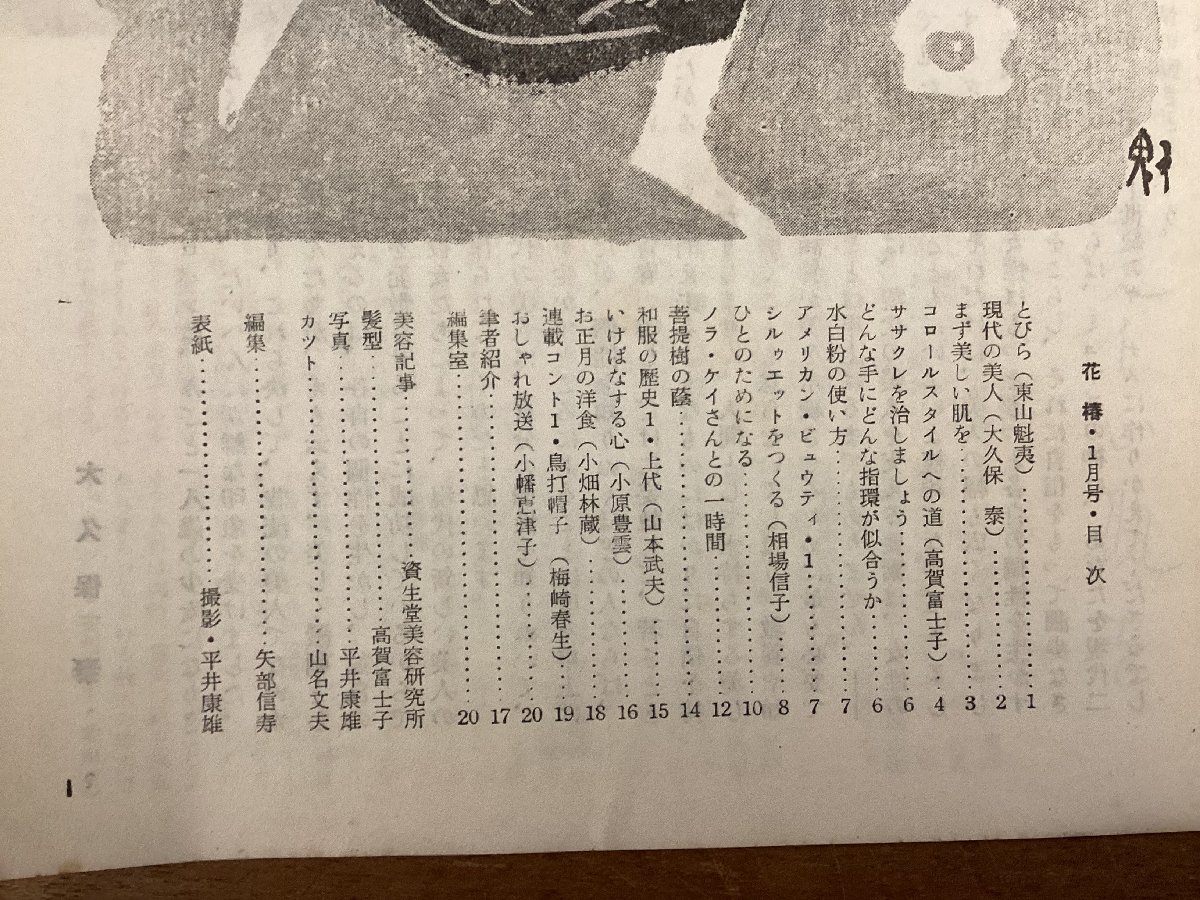 魁
花椿・1月号・目次
とびら（東山魁夷）……………1
現代の美人（大久保 泰）……………2
まず美しい肌を……………3
コロールスタイルへの道（高賀富士子）……………4
ササクレを治しましょう……………6
どんな手にどんな指環が似合うか……………6
水白粉の使い方……………7
アメリカン・ビュウティ・1……………7
シルゥエットをつくる（相場信子）……………8
ひとのためになる……………10
ノラ・ケイさんとの一時間……………12
菩提樹の蔭……………14
和服の歴史1・上代（山本武夫）……………15
いけばなする心（小原豊雲）……………16
お正月の洋食（小畑林蔵）……………18
連載コント1・鳥打帽子（梅崎春生）……………19
おしゃれ放送（小幡恵津子）……………20
筆者紹介……………17
編集室……………20
美容記事……………資生堂美容研究所
髪型……………高賀富士子
写真……………平井康雄
カット……………山名文夫
編集……………矢部信寿
表紙……………撮影・平井康雄
1